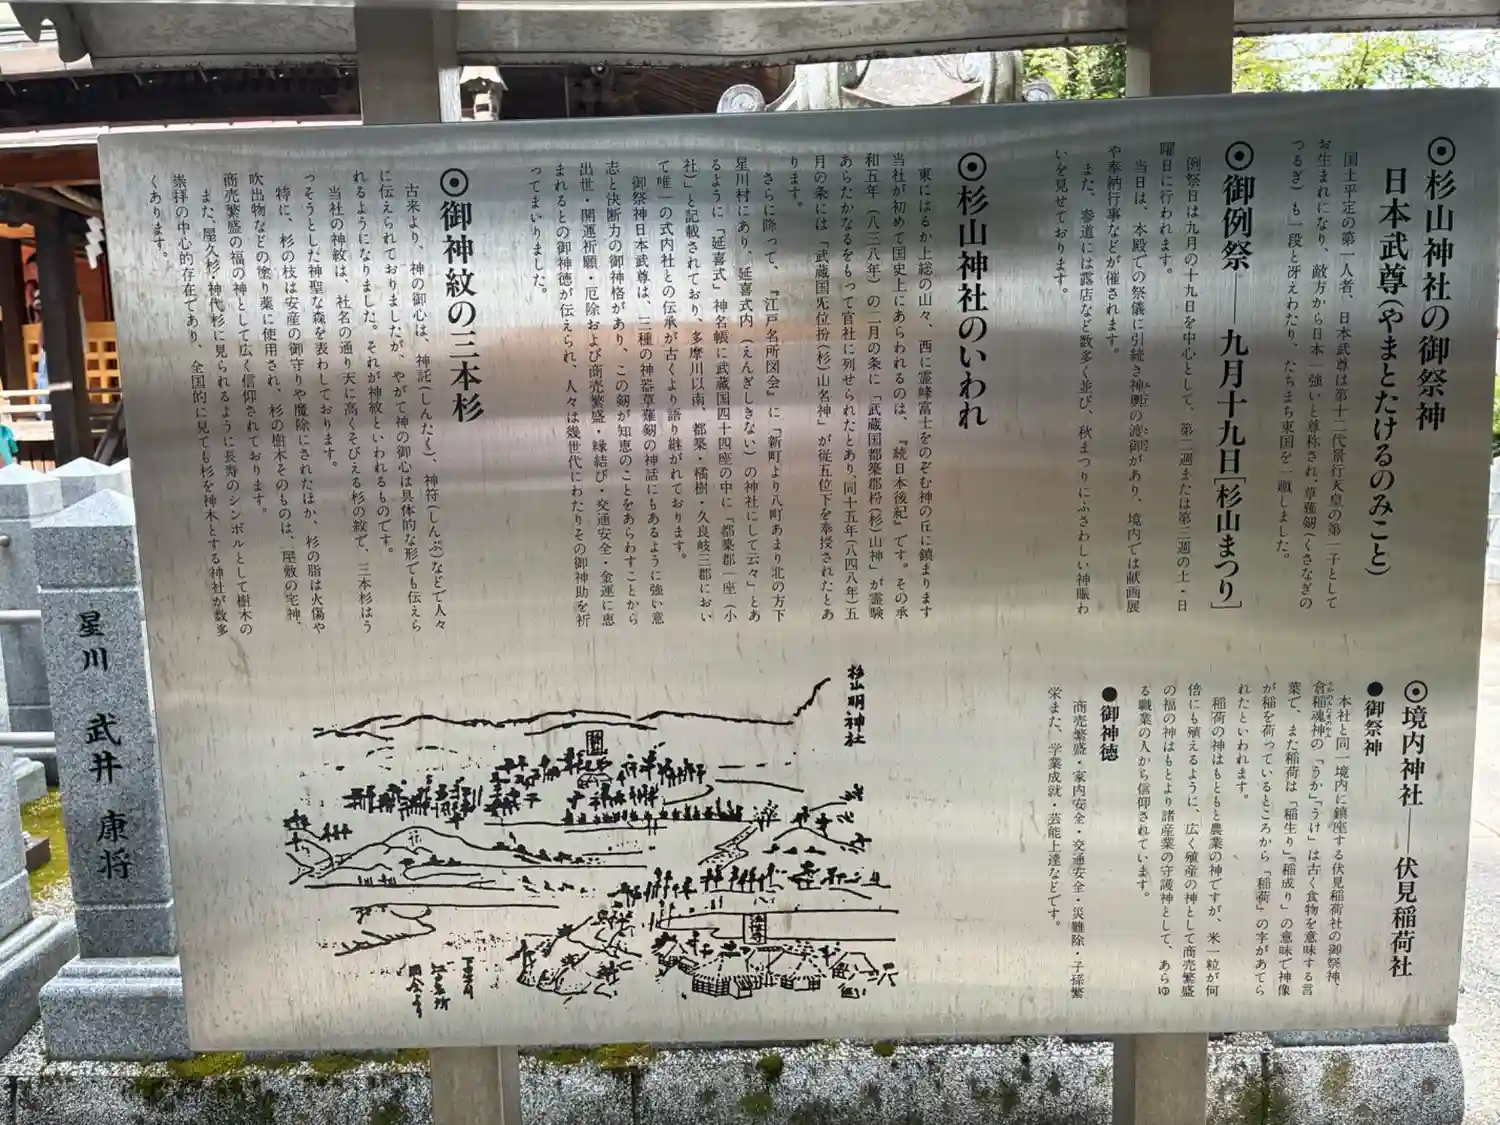 ◉杉山神社の御祭神
日本武尊(やまとたけるのみこと)
国土平定の第一人者、日本武尊は第十二代景行天皇の第二子として
お生まれになり、敵方から日本一強いと尊称され、草薙剱(くさなぎの
つるぎ)も一段と冴えわたり、たちまち東国を一蹴しました。
◉御例祭――九月十九日[杉山まつり]
例祭日は九月の十九日を中心として、第二週または第三週の土・日
曜日に行われます。
当日は、本殿での祭儀に引続き神輿の渡御があり、境内では献画展
や奉納行事などが催されます。
また、参道には露店など数多く並び、秋まつりにふさわしい神賑わ
いを見せております。
◉杉山神社のいわれ
東にはるか上総の山々、西に霊峰富士をのぞむ神の丘に鎮まります
当社が初めて国史上にあらわれるのは、『続日本後紀』です。その承
和五年(八三八年)の二月の条に「武蔵国都築郡枌(杉)山神」が霊験
あらたかなるをもって官社に列せられたとあり、同十五年(八四八年)五
月の条には「武蔵国无位枌(杉)山名神」が従五位下を奉授されたとあ
ります。
さらに降って、『江戸名所図会』に「新町より八町あまり北の方下
星川村にあり、延喜式内(えんぎしきない)の神社にして云々」とあ
るように「延喜式」神名帳に武蔵国四十四座の中に「都築郡一座(小
社)」と記載されており、多摩川以南、都築・橘樹・久良岐三郡におい
て唯一の式内社との伝承が古くより語り継がれております。
御祭神日本武尊は、三種の神器草薙剱の神話にもあるように強い意
志と決断力の御神格があり、この剱が知恵のことをあらわすことから
出世・開運祈願・厄除および商売繁盛・縁結び・交通安全・金運に恵
まれるとの御神徳が伝えられ、人々は幾世代にわたりその御神助を祈
ってまいりました。
◉御神紋の三本杉
古来より、神の御心は、神託(しんたく)神符(しんぷ)などで人々
に伝えられておりましたが、やがて神の御心は具体的な形でも伝えら
れるようになりました。それが神紋といわれるものです。
当社の神紋は、社名の通り天に高くそびえる杉の紋で、三本杉はう
っそうとした神聖な森を表わしております。
特に、杉の枝は安産の御守りや魔除にされたほか、杉の脂は火傷や
吹出物などの塗り薬に使用され、杉の樹木そのものは、屋敷の宅神、
商売繁盛の福の神として広く信仰されております。
また、屋久杉・神代杉に見られるように長寿のシンボルとして樹木の
崇拝の中心的存在であり、全国的に見ても杉を神木とする神社が数多
くあります。
◉境内神社――伏見稲荷社
●御祭神
本社と同一境内に鎮座する伏見稲荷社の御祭神、
倉稲魂神の「うか」「うけ」は古く食物を意味する言
葉で、また稲荷は「稲生り」「稲成り」の意味で神像
が稲を荷っているところから「稲荷」の字があてら
れたといわれます。
稲荷の神はもともと農業の神ですが、米一粒が何
倍にも殖えるように、広く殖産の神として商売繁盛
の福の神はもとより諸産業の守護神として、あらゆ
る職業の人から信仰されています。
●御神徳
商売繁盛・家内安全・交通安全・災難除・子孫繁
栄また、学業成就・芸能上達などです。
杉山明神社
下星川
江戸名所
図会より
星川 武井 康将